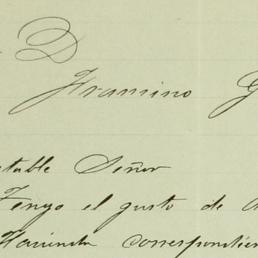 D
Framino G
table Señor
Tengo el gusto de
Hacienda correspondien